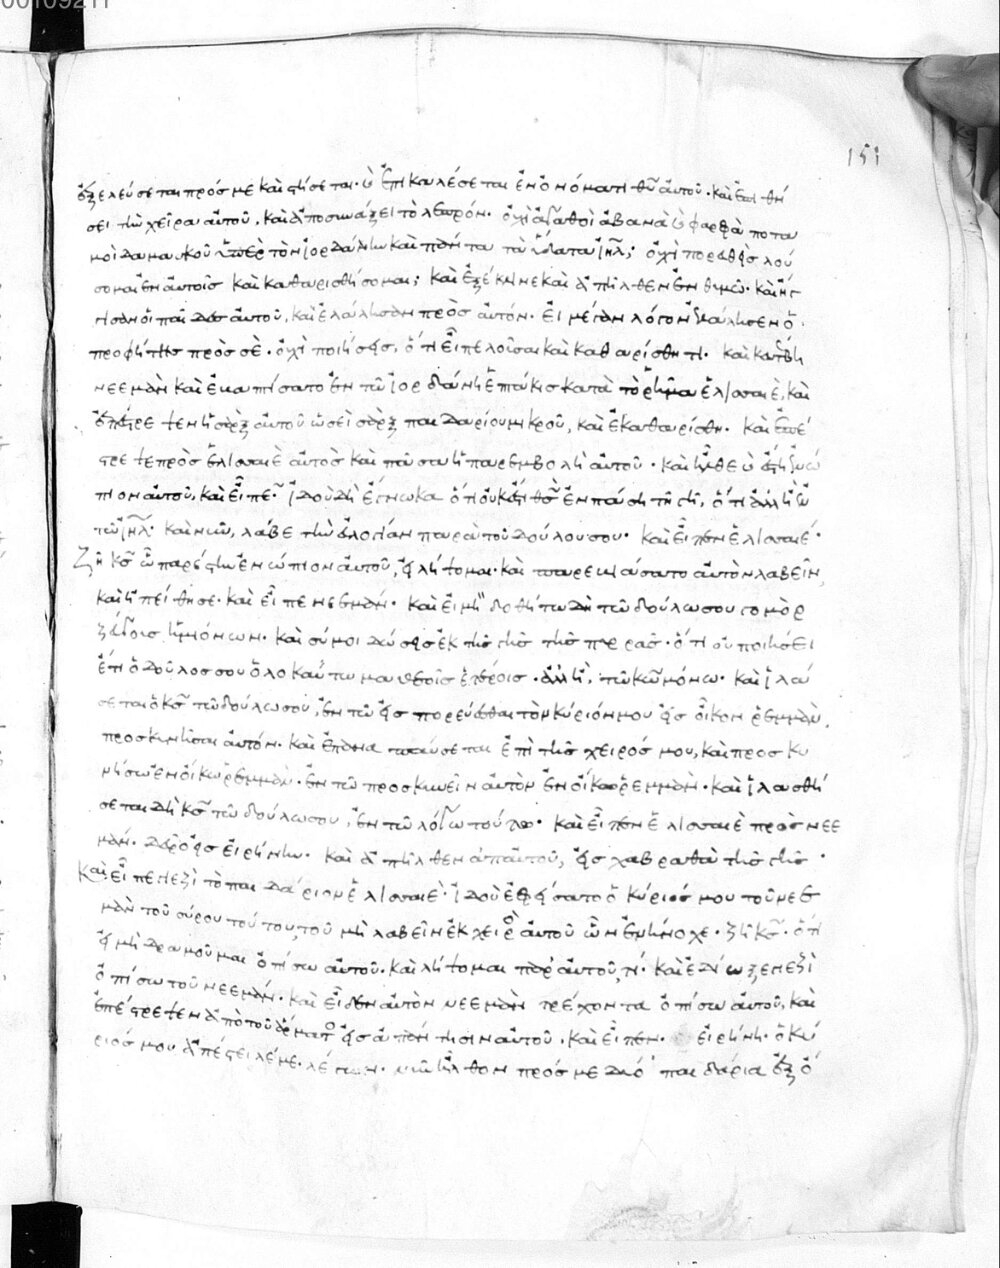 151
ἐξελεύσεται πρός με καὶ στήσεται· καὶ ἐπικαλέσεται ἐν ὀνόματι θῦ αὐτοῦ· καὶ ἐπιθή
σει τὴν χεῖρα αὐτοῦ, καὶ ἀποσυνάξει τὸ λεπρόν· οὐχὶ ἀγαθοὶ ἀβανὰ καὶ φαρφὰ ποτα
μοὶ δαμασκοῦ ὑπὲρ τὸν ἰορδάνην καὶ πάντα τὰ ὕδατα ἰηλ; οὐχὶ πορευθεὶς λού
σομαι ἐν αὐτοῖς καὶ καθαρισθήσομαι; καὶ ἐξέκλινε καὶ ἀπῆλθεν ἐν θυμῷ· καὶ ἤγ
γισαν οἱ παῖδες αὐτοῦ, καὶ ἐλάλησαν πρὸς αὐτόν· εἰ μέγαν λόγον ἐλάλησεν ὁ
προφήτης πρὸς σὲ· οὐχὶ ποιήσεις, ὅτι εἶπε λοῦσαι καὶ καθαρίσθητι· καὶ κατέβη
νεεμὰν καὶ ἐβαπτίσατο ἐν τῷ ἰορδάνῃ ἑπτάκις κατὰ τὸ ῥῆμα ἐλισσαιὲ, καὶ
ἐπέστρεψεν ἡ σὰρξ αὐτοῦ ὡσεὶ σὰρξ παιδαρίου μικροῦ, καὶ ἐκαθαρίσθη· καὶ ἐπέ
στρεψε πρὸς ἐλισσαιὲ αὐτὸς καὶ πᾶσα ἡ παρεμβολὴ αὐτοῦ· καὶ ἦλθε καὶ ἔστη ἐνώ
πιον αὐτοῦ, καὶ εἶπε· ἰδοὺ δὴ ἔγνωκα ὅτι οὐκ ἔστι θς ἐν πάσῃ τῇ γῇ, ὅτι ἀλλ' ἢ ἐν
τῷ ἰηλ· καὶ νῦν, λάβε τὴν εὐλογίαν παρὰ τοῦ δούλου σου· καὶ εἶπεν ἐλισσαιέ·
Ζῇ κς ᾧ παρέστην ἐνώπιον αὐτοῦ, εἰ λήψομαι· καὶ παρεβιάσατο αὐτὸν λαβεῖν,
καὶ ἠπείθησε· καὶ εἶπε νεεμάν· καὶ εἰ μὴ δοθήτω δὴ τῷ δούλῳ σου γομὸρ
ζεῦγους ἡμιόνων· καὶ σύ μοι δώσεις ἐκ τῆς γῆς τῆς πυρρᾶς· ὅτι οὐ ποιήσει
ἔτι ὁ δοῦλος σου ὁλοκαύτωμα θεοῖς ἑτέροις· ἀλλ' ἢ, τῷ κῷ μόνῳ· καὶ ἱλά
σεται ὁ κς τῷ δούλῳ σου, ἐν τῷ εἰσπορεύεσθαι τὸν κύριόν μου εἰς οἶκον ῥεμμὰν,
προσκυνῆσαι αὐτόν· καὶ ἐπαναπαύσεται ἐπὶ τῆς χειρός μου, καὶ προσκυ
νήσω ἐν οἴκῳ ῥεμμάν· ἐν τῷ προσκυνεῖν αὐτὸν ἐν οἴκῳ ῥεμμάν· καὶ ἱλασθή
σεται δὴ κς τῷ δούλῳ σου, ἐν τῷ λόγῳ τούτῳ· καὶ εἶπεν ἐλισσαιὲ πρὸς νεε
μάν· δεῦρο εἰς εἰρήνην· καὶ ἀπῆλθεν ἀπ' αὐτοῦ, εἰς χαβραθὰ τῆς γῆς·
Καὶ εἶπε γιεζὶ τὸ παιδάριον ἐλισσαιὲ· ἰδοὺ ἐφείσατο ὁ κύριός μου τοῦ νεε
μὰν τοῦ σύρου τούτου, τοῦ μὴ λαβεῖν ἐκ χειρὸς αὐτοῦ ὧν ἐνήνοχε· ζῇ κς· ὅτι
εἰ μὴ δραμοῦμαι ὀπίσω αὐτοῦ· καὶ λήψομαι παρ' αὐτοῦ, τί· καὶ ἐδίωξε γιεζὶ
ὀπίσω τοῦ νεεμάν· καὶ εἶδεν αὐτὸν νεεμὰν τρέχοντα ὀπίσω αὐτοῦ, καὶ
ἐπέστρεψεν ἀπὸ τοῦ ἅρματος εἰς ἀπάντησιν αὐτοῦ, καὶ εἶπεν· εἰρήνη· ὁ κύ
ριός μου ἀπέστειλέ με, λέγων· νῦν ἦλθον πρός με δύο παιδάρια ἐξ ὄ